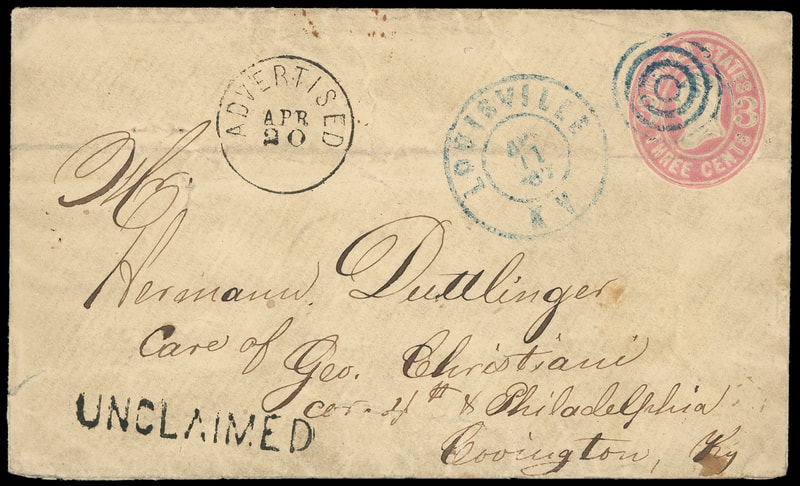 ADVERTISED
APR
20
LOUISVILLE KY
11
STATES
3
THREE CENTS
Mr
Hermann Duttlinger
Care of Geo. Christiani
cor. 4th & Philadelphia
Covington, Ky
UNCLAIMED